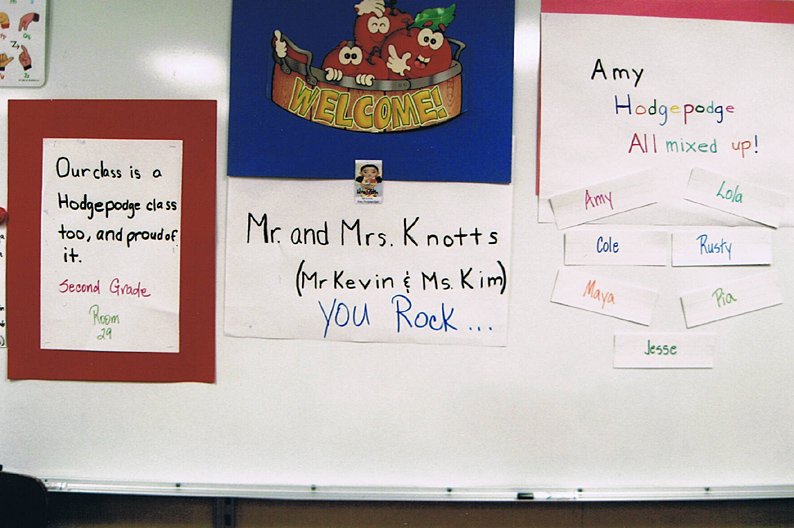 Our class is a
Hodgepodge class
too, and proud of
it.
Second Grade
Room
29
WELCOME!
Mr. and Mrs. Knotts
(Mr Kevin & Ms. Kim)
YOU Rock...
Amy
Hodgepodge
All mixed up!
Amy
Lola
Cole
Rusty
Maya
Pia
Jesse